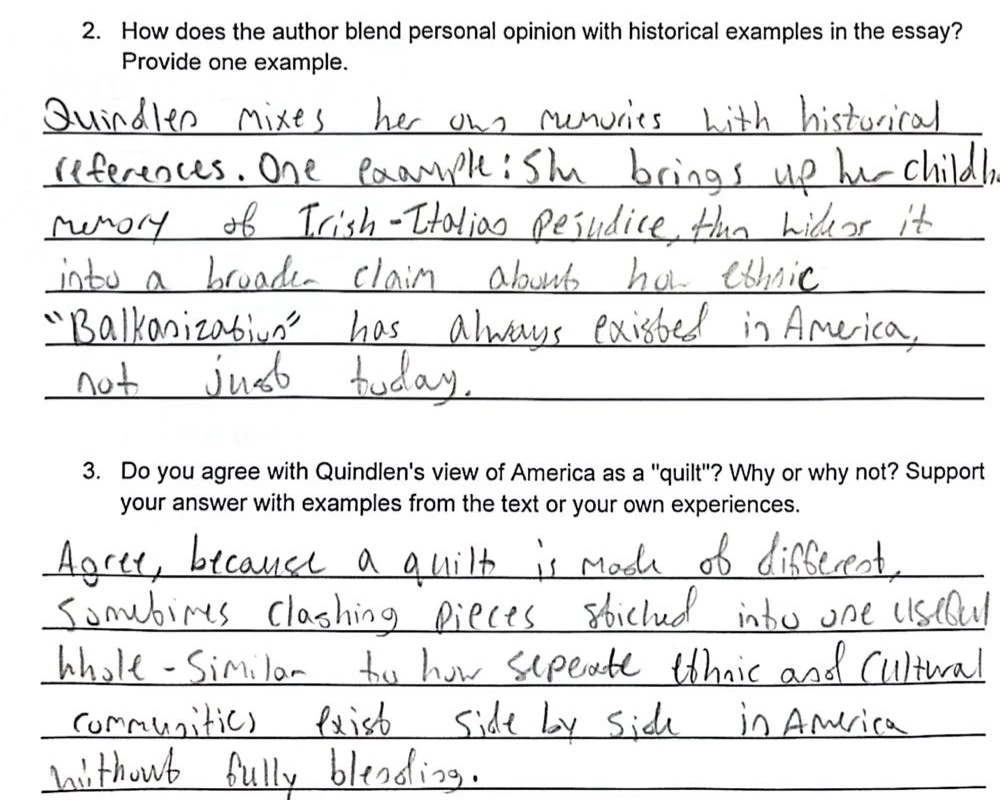 2. How does the author blend personal opinion with historical examples in the essay?
Provide one example.
Quindlen mixes her own memories with historical
references. One example: She brings up her childh
memory of Irish-Italian pejudice, then widens it
into a broader claim about how ethnic
"Balkanization" has always existed in America,
not just today.
3. Do you agree with Quindlen's view of America as a "quilt"? Why or why not? Support
your answer with examples from the text or your own experiences.
Agree, because a quilt is made of different,
sometimes clashing pieces stiched into one useful
whole - similar to how seperate ethnic and cultural
communities exist side by side in America
without fully blending.